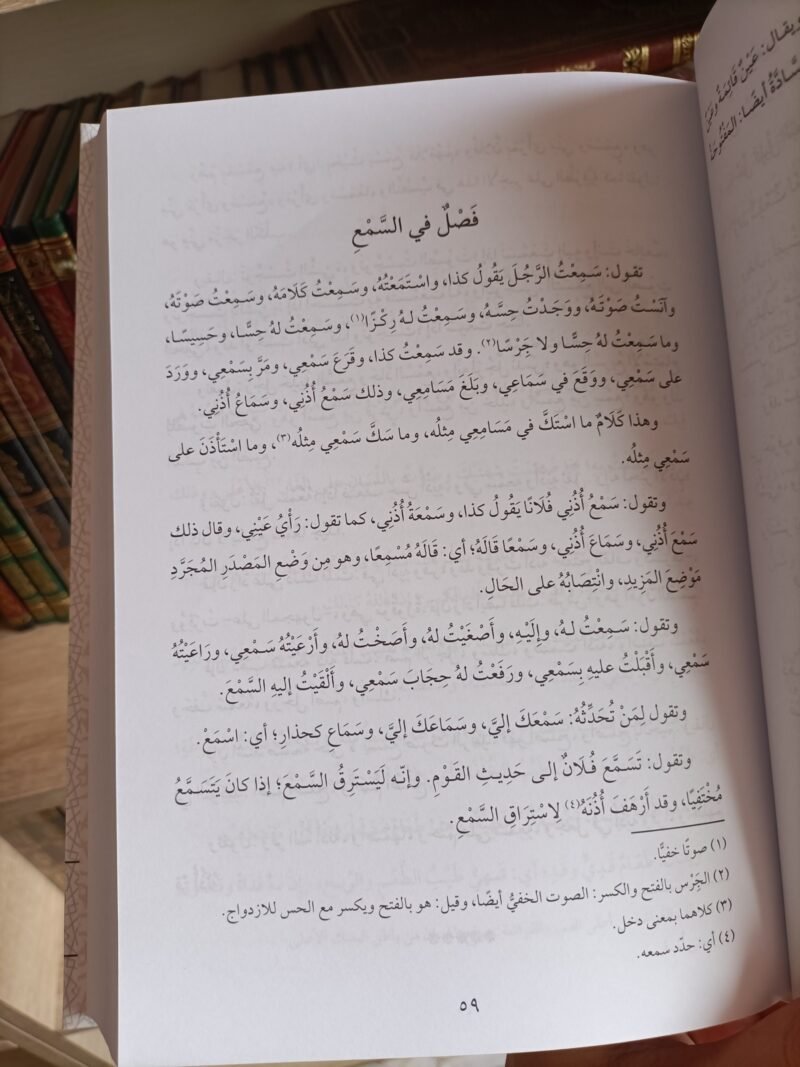 ويقال: عَيْنٌ قَائِمَةٌ
أيضًا:
فَصْلٌ في السَّمْعِ
تقول: سَمِعْتُ الرَّجُلَ يَقُولُ كذا، واسْتَمَعْتُهُ، وسَمِعْتُ كَلَامَهُ، وسَمِعْتُ صَوْتَهُ،
وآنَسْتُ صَوْتَهُ، ووَجَدْتُ حِسَّهُ، وسَمِعْتُ لهُ رِكْزًا(١)، وسَمِعْتُ لهُ حِسًّا، وحَسِيسًا،
وما سَمِعْتُ لهُ حِسًّا ولا جَِرْسًا(٢). وقد سَمِعْتُ كذا، وقَرَعَ سَمْعِي، ومَرَّ بِسَمْعِي، ووَرَدَ
على سَمْعِي، ووَقَعَ في سَمَاعِي، وبَلَغَ مَسَامِعِي، وذلك سَمْعُ أُذُنِي، وسَمَاعُ أُذُنِي.
وهذا كَلَامٌ ما اسْتَكَّ في مَسَامِعِي مِثلُه، وما سَكَّ سَمْعِي مِثلُه(٣)، وما اسْتَأْذَنَ على
سَمْعِي مِثلُه.
وتقول: سَمْعُ أُذُنِي فُلَانًا يَقُولُ كذا، وسَمْعَةُ أُذُنِي، كما تقول: رَأْيُ عَيْنِي، وقال ذلك
سَمْعَ أُذُنِي، وسَمَاعَ أُذُنِي، وسَمْعًا قَالَهُ؛ أي: قَالَهُ مُسْمِعًا، وهو مِن وَضْعِ المَصْدَرِ المُجَرَّدِ
مَوْضِعَ المَزِيدِ، وانْتِصَابُهُ على الحَالِ.
وتقول: سَمِعْتُ لهُ، وإِلَيْهِ، وأَصْغَيْتُ لهُ، وأَصَخْتُ لهُ، وأَرْعَيْتُهُ سَمْعِي، ورَاعَيْتُهُ
سَمْعِي، وأَقْبَلْتُ عليهِ بِسَمْعِي، ورَفَعْتُ لهُ حِجَابَ سَمْعِي، وأَلْقَيْتُ إليهِ السَّمْعَ.
وتقول لِمَنْ تُحَدِّثُهُ: سَمْعَكَ إليَّ، وسَمَاعَكَ إليَّ، وسَمَاعِ كحذارِ؛ أي: اسْمَعْ.
وتقول: تَسَمَّعَ فُلَانٌ إلى حَدِيثِ القَوْمِ. وإنّه لَيَسْتَرِقُ السَّمْعَ؛ إذا كانَ يَتَسَمَّعُ
مُخْتَفِيًا، وقد أَرْهَفَ أُذُنَهُ(٤) لِاسْتِرَاقِ السَّمْعِ.
(١) صوتًا خفيًّا.
(٢) الجَِرْس بالفتح والكسر: الصوت الخفيُّ أيضًا، وقيل: هو بالفتح ويكسر مع الحس للازدواج.
(٣) كلاهما بمعنى دخل.
(٤) أي: حدّد سمعه.
٥٩